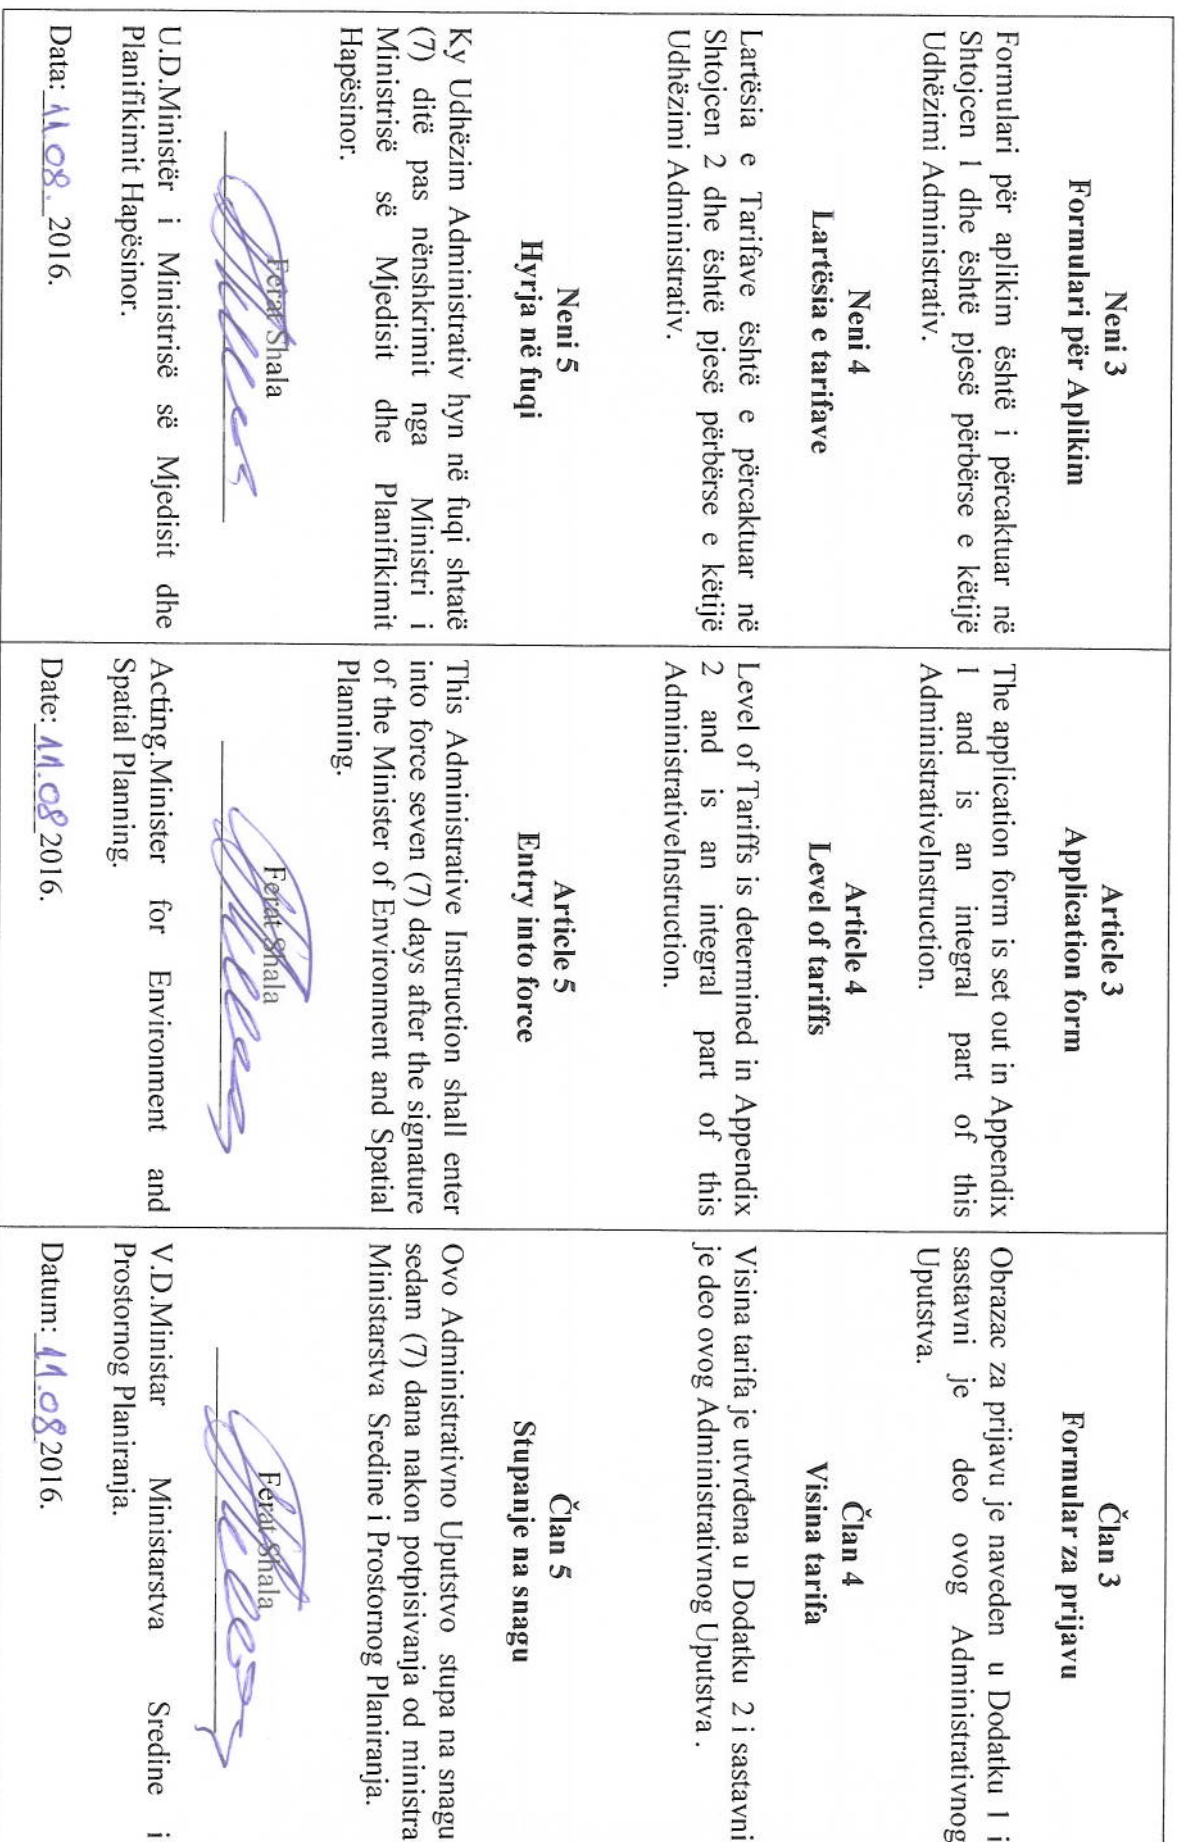 Neni 3
Formulari për Aplikim
Formulari për aplikim është i përcaktuar në
Shtojcen 1 dhe është pjesë përbërse e këtijë
Udhëzimi Administrativ.
Neni 4
Lartësia e tarifave
Lartësia e Tarifave është e përcaktuar në
Shtojcen 2 dhe është pjesë përbërse e këtijë
Udhëzimi Administrativ.
Neni 5
Hyrja në fuqi
Ky Udhëzim Administrativ hyn në fuqi shtatë
(7) ditë pas nënshkrimit nga Ministri i
Ministrisë së Mjedisit dhe Planifikimit
Hapësinor.
Ferat Shala
U.D.Ministër i Ministrisë së Mjedisit dhe
Planifikimit Hapësinor.
Data: 11.08. 2016.
Article 3
Application form
The application form is set out in Appendix
1 and is an integral part of this
AdministrativeInstruction.
Article 4
Level of tariffs
Level of Tariffs is determined in Appendix
2 and is an integral part of this
AdministrativeInstruction.
Article 5
Entry into force
This Administrative Instruction shall enter
into force seven (7) days after the signature
of the Minister of Environment and Spatial
Planning.
Ferat Shala
Acting.Minister for Environment and
Spatial Planning.
Date: 11.08 2016.
Član 3
Formular za prijavu
Obrazac za prijavu je naveden u Dodatku 1 i
sastavni je deo ovog Administrativnog
Uputstva.
Član 4
Visina tarifa
Visina tarifa je utvrđena u Dodatku 2 i sastavni
je deo ovog Administrativnog Uputstva .
Član 5
Stupanje na snagu
Ovo Administrativno Uputstvo stupa na snagu
sedam (7) dana nakon potpisivanja od ministra
Ministarstva Sredine i Prostornog Planiranja.
Ferat Shala
V.D.Ministar Ministarstva Sredine i
Prostornog Planiranja.
Datum: 11.08 2016.